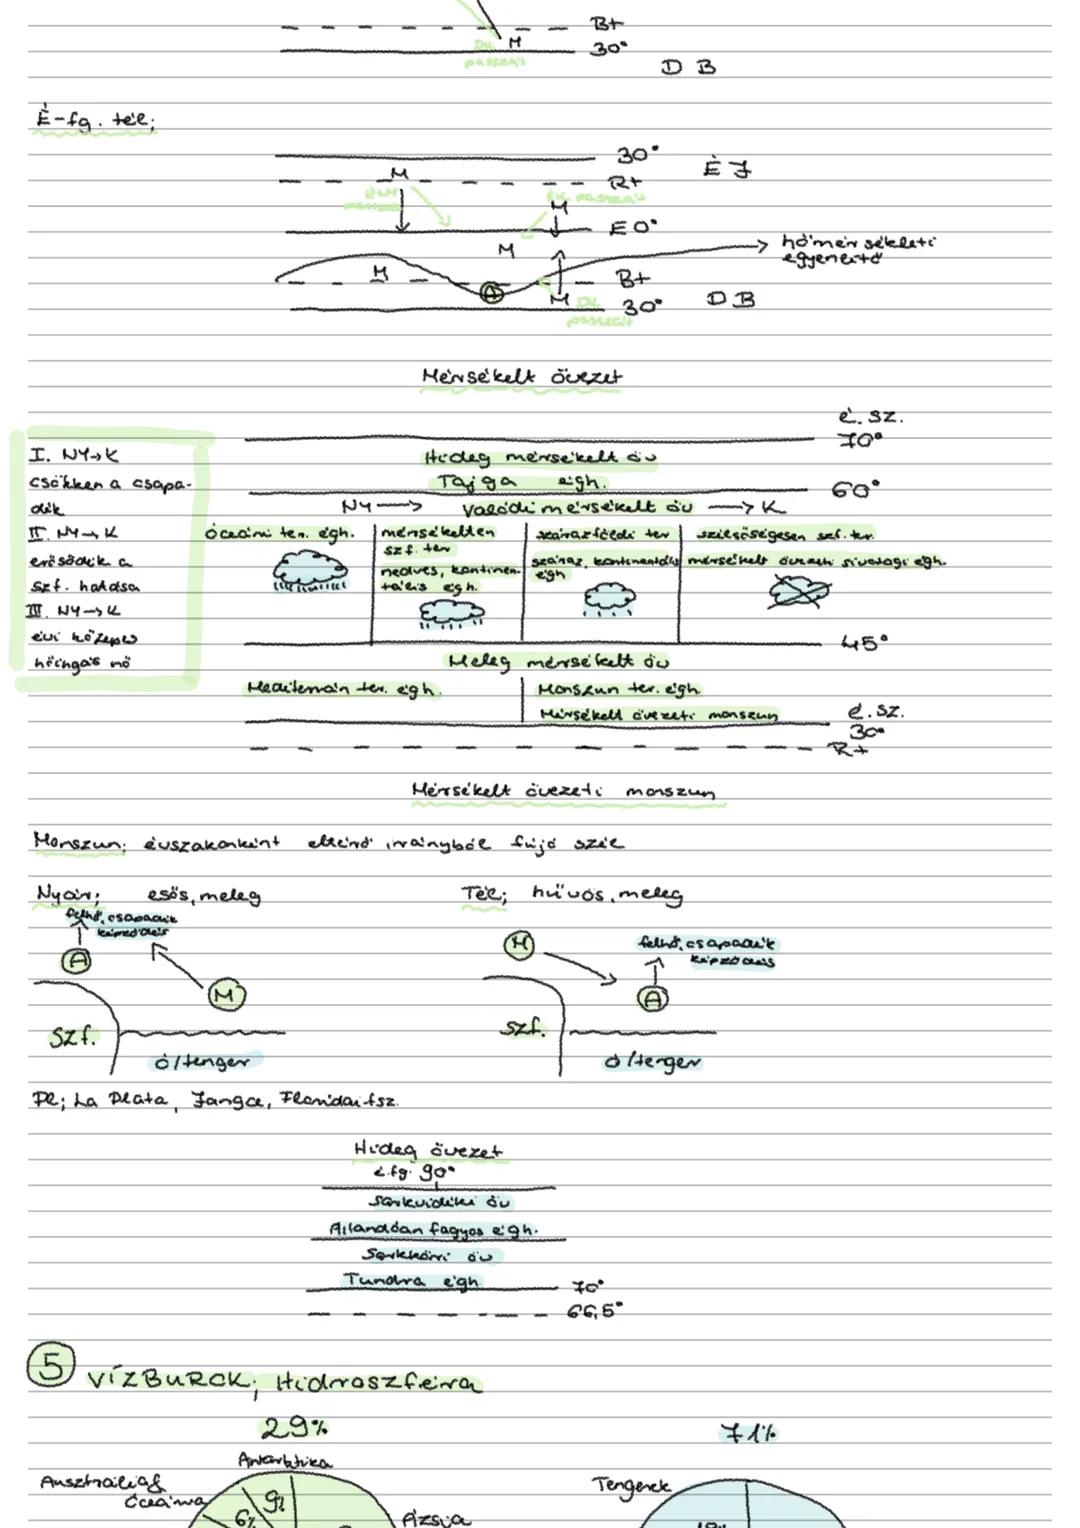 B+
M
30°
DK passzát
D B
É-fg. tél;
30°
M
R+
É J
ÉK passzát
M
E 0°
M
hőmérsékleti egyenlítő
M
B+
A
M
30°
D B
DK passzát
Mérsékelt övezet
é. sz.
70°
I. NY→K
Hideg mérsékelt öv
csökken a csapa-
Tajga égh.
60°
dék
NY → Valódi mérsékelt öv → K
II. NY→K
erősödik a
szf. hatása
III. NY→K
évi közepes
hőingás nő
Óceáni ter. égh.
mérsékelten
szf. ter
nedves, kontinen-
tális égh.
szárazföldi ter
száraz, kontinentális
égh
szélsőségesen szf. ter.
mérsékelt övezeti sivatagi égh.
45°
Meleg mérsékelt öv
Mediterrán ter. égh.
Monszun ter. égh
Mérsékelt övezeti monszun
é. sz.
30°
R+
Mérsékelt övezeti monszun
Monszun; évszakonként eltérő irányból fújó szél
Nyár; esős, meleg
Tél; hűvös, meleg
felhő, csapadék
képződés
A
M
szf.
ó/tenger
M
felhő, csapadék
képződés
A
szf.
ó/tenger
Pl; La Plata, Jangce, Floridai-fsz.
Hideg övezet
é.fg. 90°
Sarkvidéki öv
Állandóan fagyos égh.
Sarkköri öv
Tundra égh.
70°
66,5°
5 VÍZBUROK; Hidroszféra
29%
71%
Antarktika
Ausztrália &
Óceánia
9%
6%
Ázsia
Tengerek